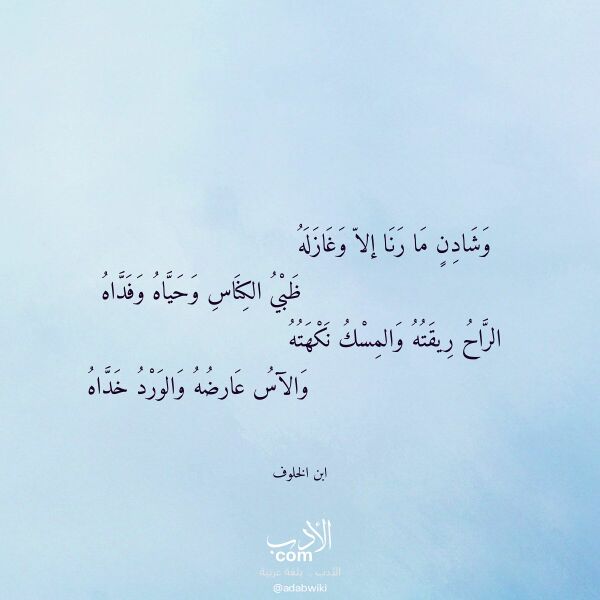 وَشَادِنٍ مَا رَنَا إلاّ وَغَازَلَهُ
ظَبْيُ الكِنَاسِ وَحَيَّاهُ وَفَدَّاهُ
الرَّاحُ رِيقَتُهُ وَالمِسْكُ نَكْهَتُهُ
وَالآسُ عَارضُهُ وَالوَرْدُ خَدَّاهُ
ابن الخلوف
الأدب
com
الأدب .. بلغة عربية
@adabwiki